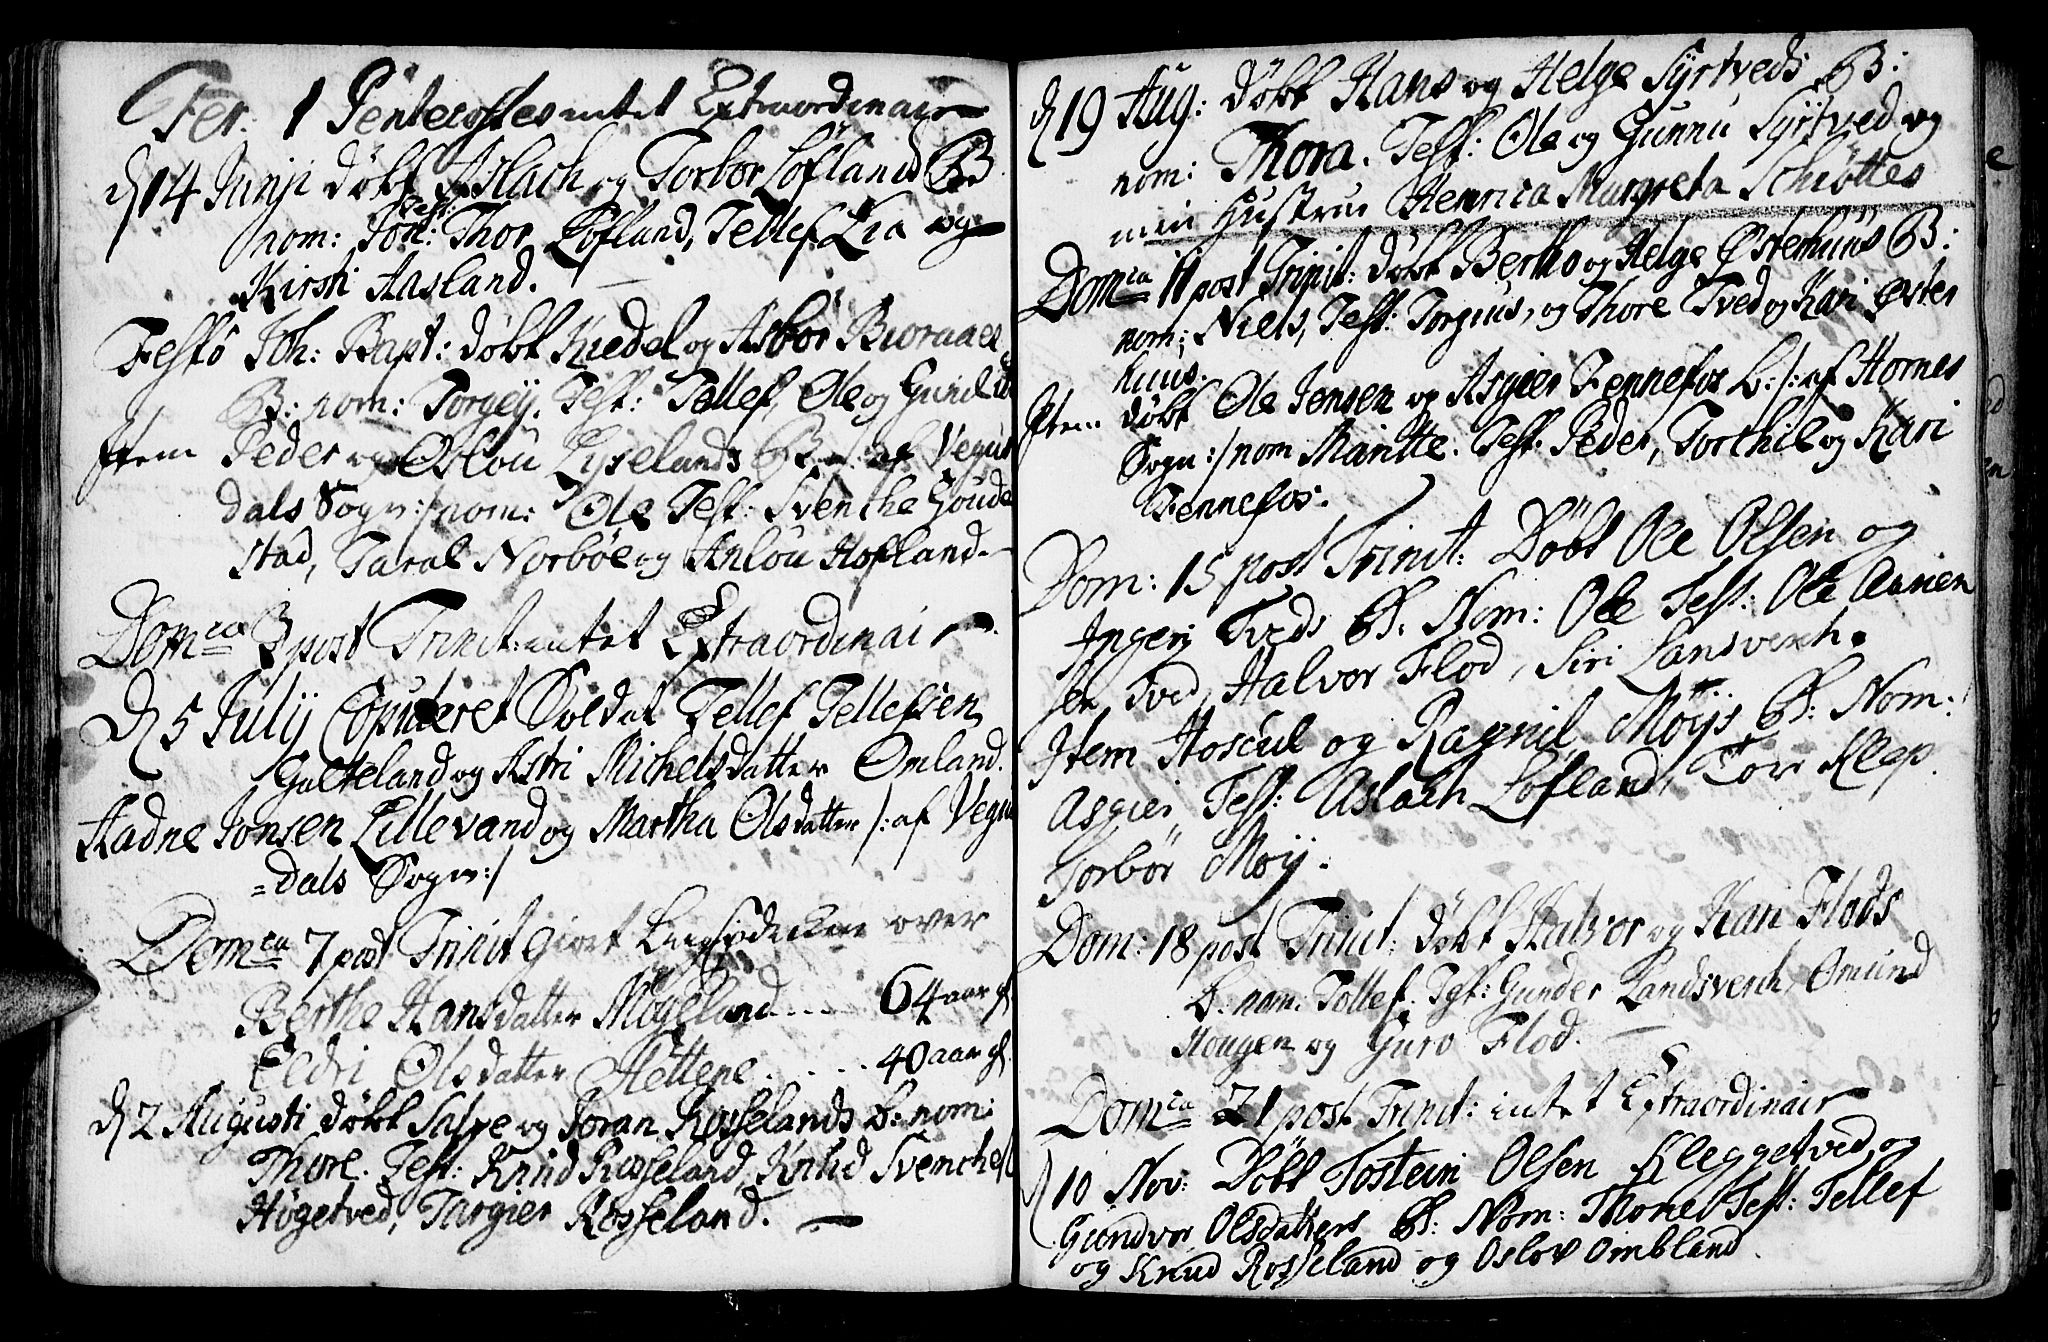 Fer: 1 Pentecostes intet Extraordinair
d 14 Junji døbt Aslach og Torbor Løfland B
nom: Jon: Test: Thor Løfland, Tellef Lia og
Kirsti Aasland.
Festo Joh: Bapt: døbt Kiedel og Asbor Bioraaes
B: nom: Torgeij. Test: Tellef, Ole og Gunild
Item Peder og Oslou Lyselands B /: af Vegus
dals Sogn :/ nom: Ole Test: Svenche Goude
stad, Taral Norbøe og Anlou Hofland.
Domca 3 post Trinit: intet Extraordinair.
d 5 Julij Copuleret Soldat Tellef Tellefsen
Galteland og Astri Michelsdatter Omland.
Aadne Jonsen Lillevand og Martha Olsdatter /: af Vegus
=dals Sogn :/
Domca 7 post Trinit giort over
Berthe Hansdatter Møgeland .... 64 aar gl
Eldri Olsdatter Hettene ..... 40 aar gl.
d 2 Augusti døbt Salve og Joran Rosselands B: nom:
Thore. Test: Knud Rosseland, Knud Svenches
Høgetved, Targier Rosseland.
d 19 Aug: døbt Hans og Helge Syrtveds B:
nom: Thora. Test: Ole og Gunnu Syrtved og
min Hustrue Henrica Margreta Schiøttes
Domca 11 post Trinit: døbt Bertho og Helge Østerhuus B:
nom: Niels, Test: Torgius, og Thore Tved og Kari Øster
huus.
Item døbt Ole Jensen og Asgier Fennefos B: /: af Hornes
Sogn :/ nom Mantte. Test. Peder, Torthil og Kari
Fennefos.
Dom: 15 post Trinit: Døbt Ole Olsen og
Ingerj Tveds B. Nom: Ole Test: Ole Aanen
sen Tved, Halvor Flod, Siri Landsverch.
Item Hoscul og Ragnil Möÿs B: Nom:
Asgier Test: Aslach Løfland, Tor Klep.
Torbör Moij.
Dom: 18 post Trinit: døbt Halvor og Kari Flods
B: nom: Tollef. Test: Gunder Landsverch, Omund
Hougen og Guro Flod.
Domca 21 post Trinit: intet Extraordinair
d 10 Nov: Døbt Tostein Olsen Kleggetved og
Gundvor Olsdatters B: Nom: Thone Test: Tellef
og Knud Rosseland og Oslov Ombland.